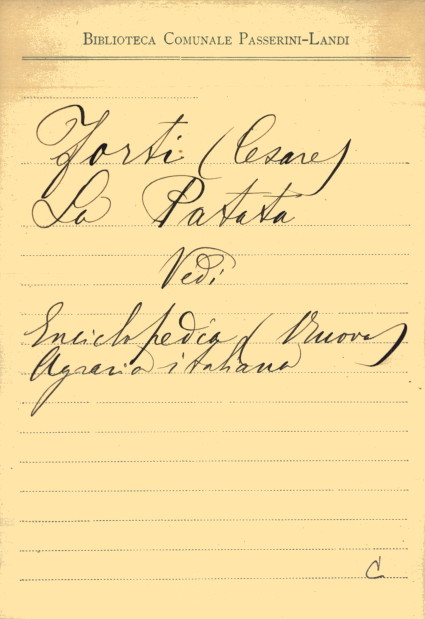 BIBLIOTECA COMUNALE PASSERINI-LANDI
Forti (Cesare)
La Patata
Vedi
Enciclopedia (Nuova)
Agraria italiana
C